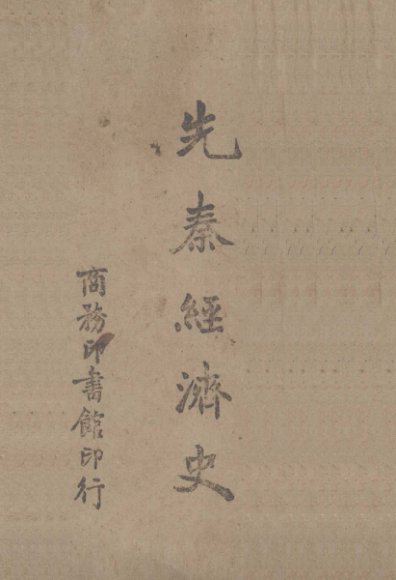 先秦經濟史
商務印書館印行